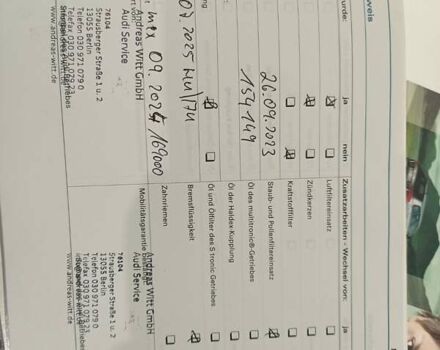 weis
urde:
ja
nein
Zusatzarbeiten - Wechsel von:
ja
Luftfiltereinsatz
Zündkerzen
Kraftstofffilter
26.09.2023
Staub- und Pollenfiltereinsatz
154149
Öl des multitronic®-Getriebes
Öl der Haldex-Kupplung
Öl und Ölfilter des S tronic Getriebes
07.2025 HU/AU
Bremsflüssigkeit
Zahnriemen
09.2024/169000
Mobilitätsgarantie
Andreas Witt GmbH
Audi Service
76104
Strausberger Straße 1 u. 2
13055 Berlin
Telefon 030 971 079 0
Telefax 030 971 079 23
www.andreas-witt.de
Andreas Witt GmbH
Audi Service
76104
Strausberger Straße 1 u. 2
13055 Berlin
Telefon 030 971 079 0
Telefax 030 971 079 23
www.andreas-witt.de